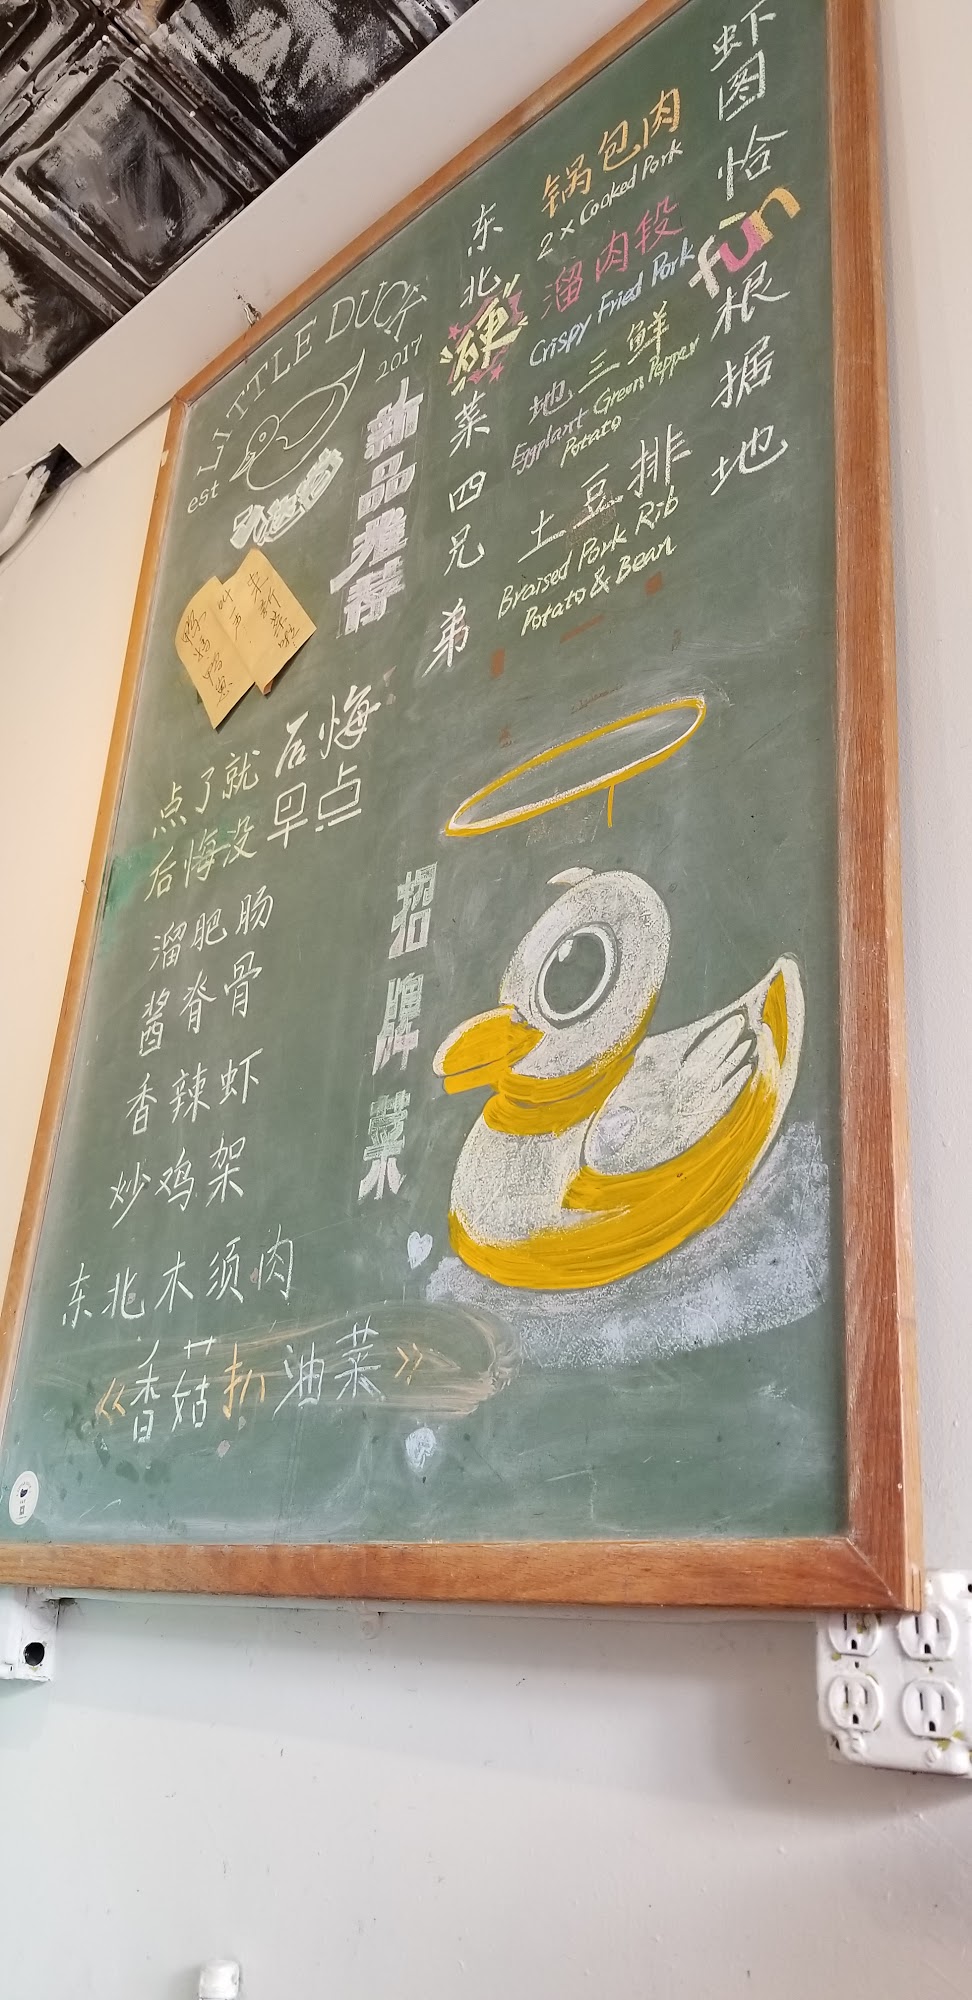 LITTLE DUCK
est 2017
新品推荐
东北硬菜四兄弟
锅包肉
2 x Cooked Pork
溜肉段
Crispy Fried Pork
地三鲜
Eggplant Green Pepper
Potato
土豆排
Braised Pork Rib
Potato & Bean
虾图恰fun根据地
点了就后悔
后悔没早点
招牌菜
溜肥肠
酱脊骨
香辣虾
炒鸡架
东北木须肉
《香菇扒油菜》